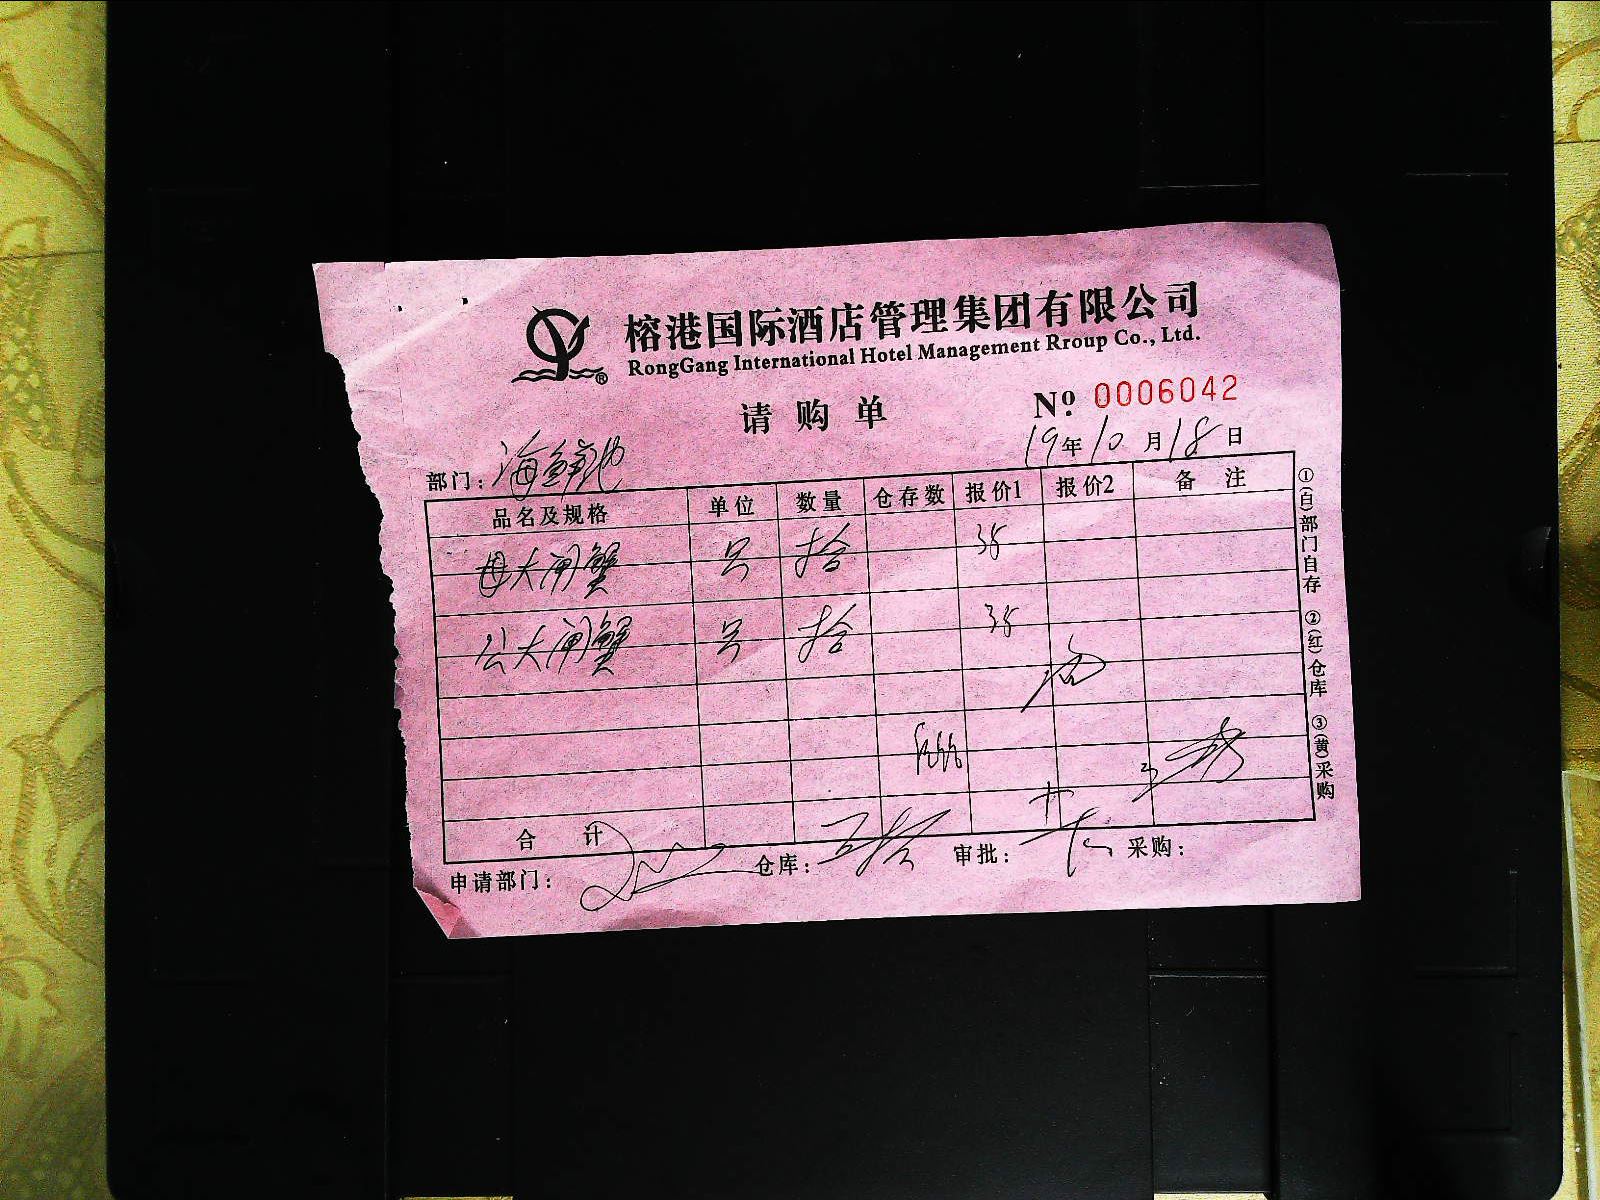 榕港国际酒店管理集团有限公司
RongGang International Hotel Management Rroup Co., Ltd.
®
请购单 № 0006042
部门: 海鲜池 19年10月18日
品名及规格 单位 数量 仓存数 报价1 报价2 备注
母大闸蟹 只 拾 38
公大闸蟹 只 拾 38
合计
申请部门: 仓库: 审批: 采购:
①(白)部门自存 ②(红)仓库 ③(黄)采购